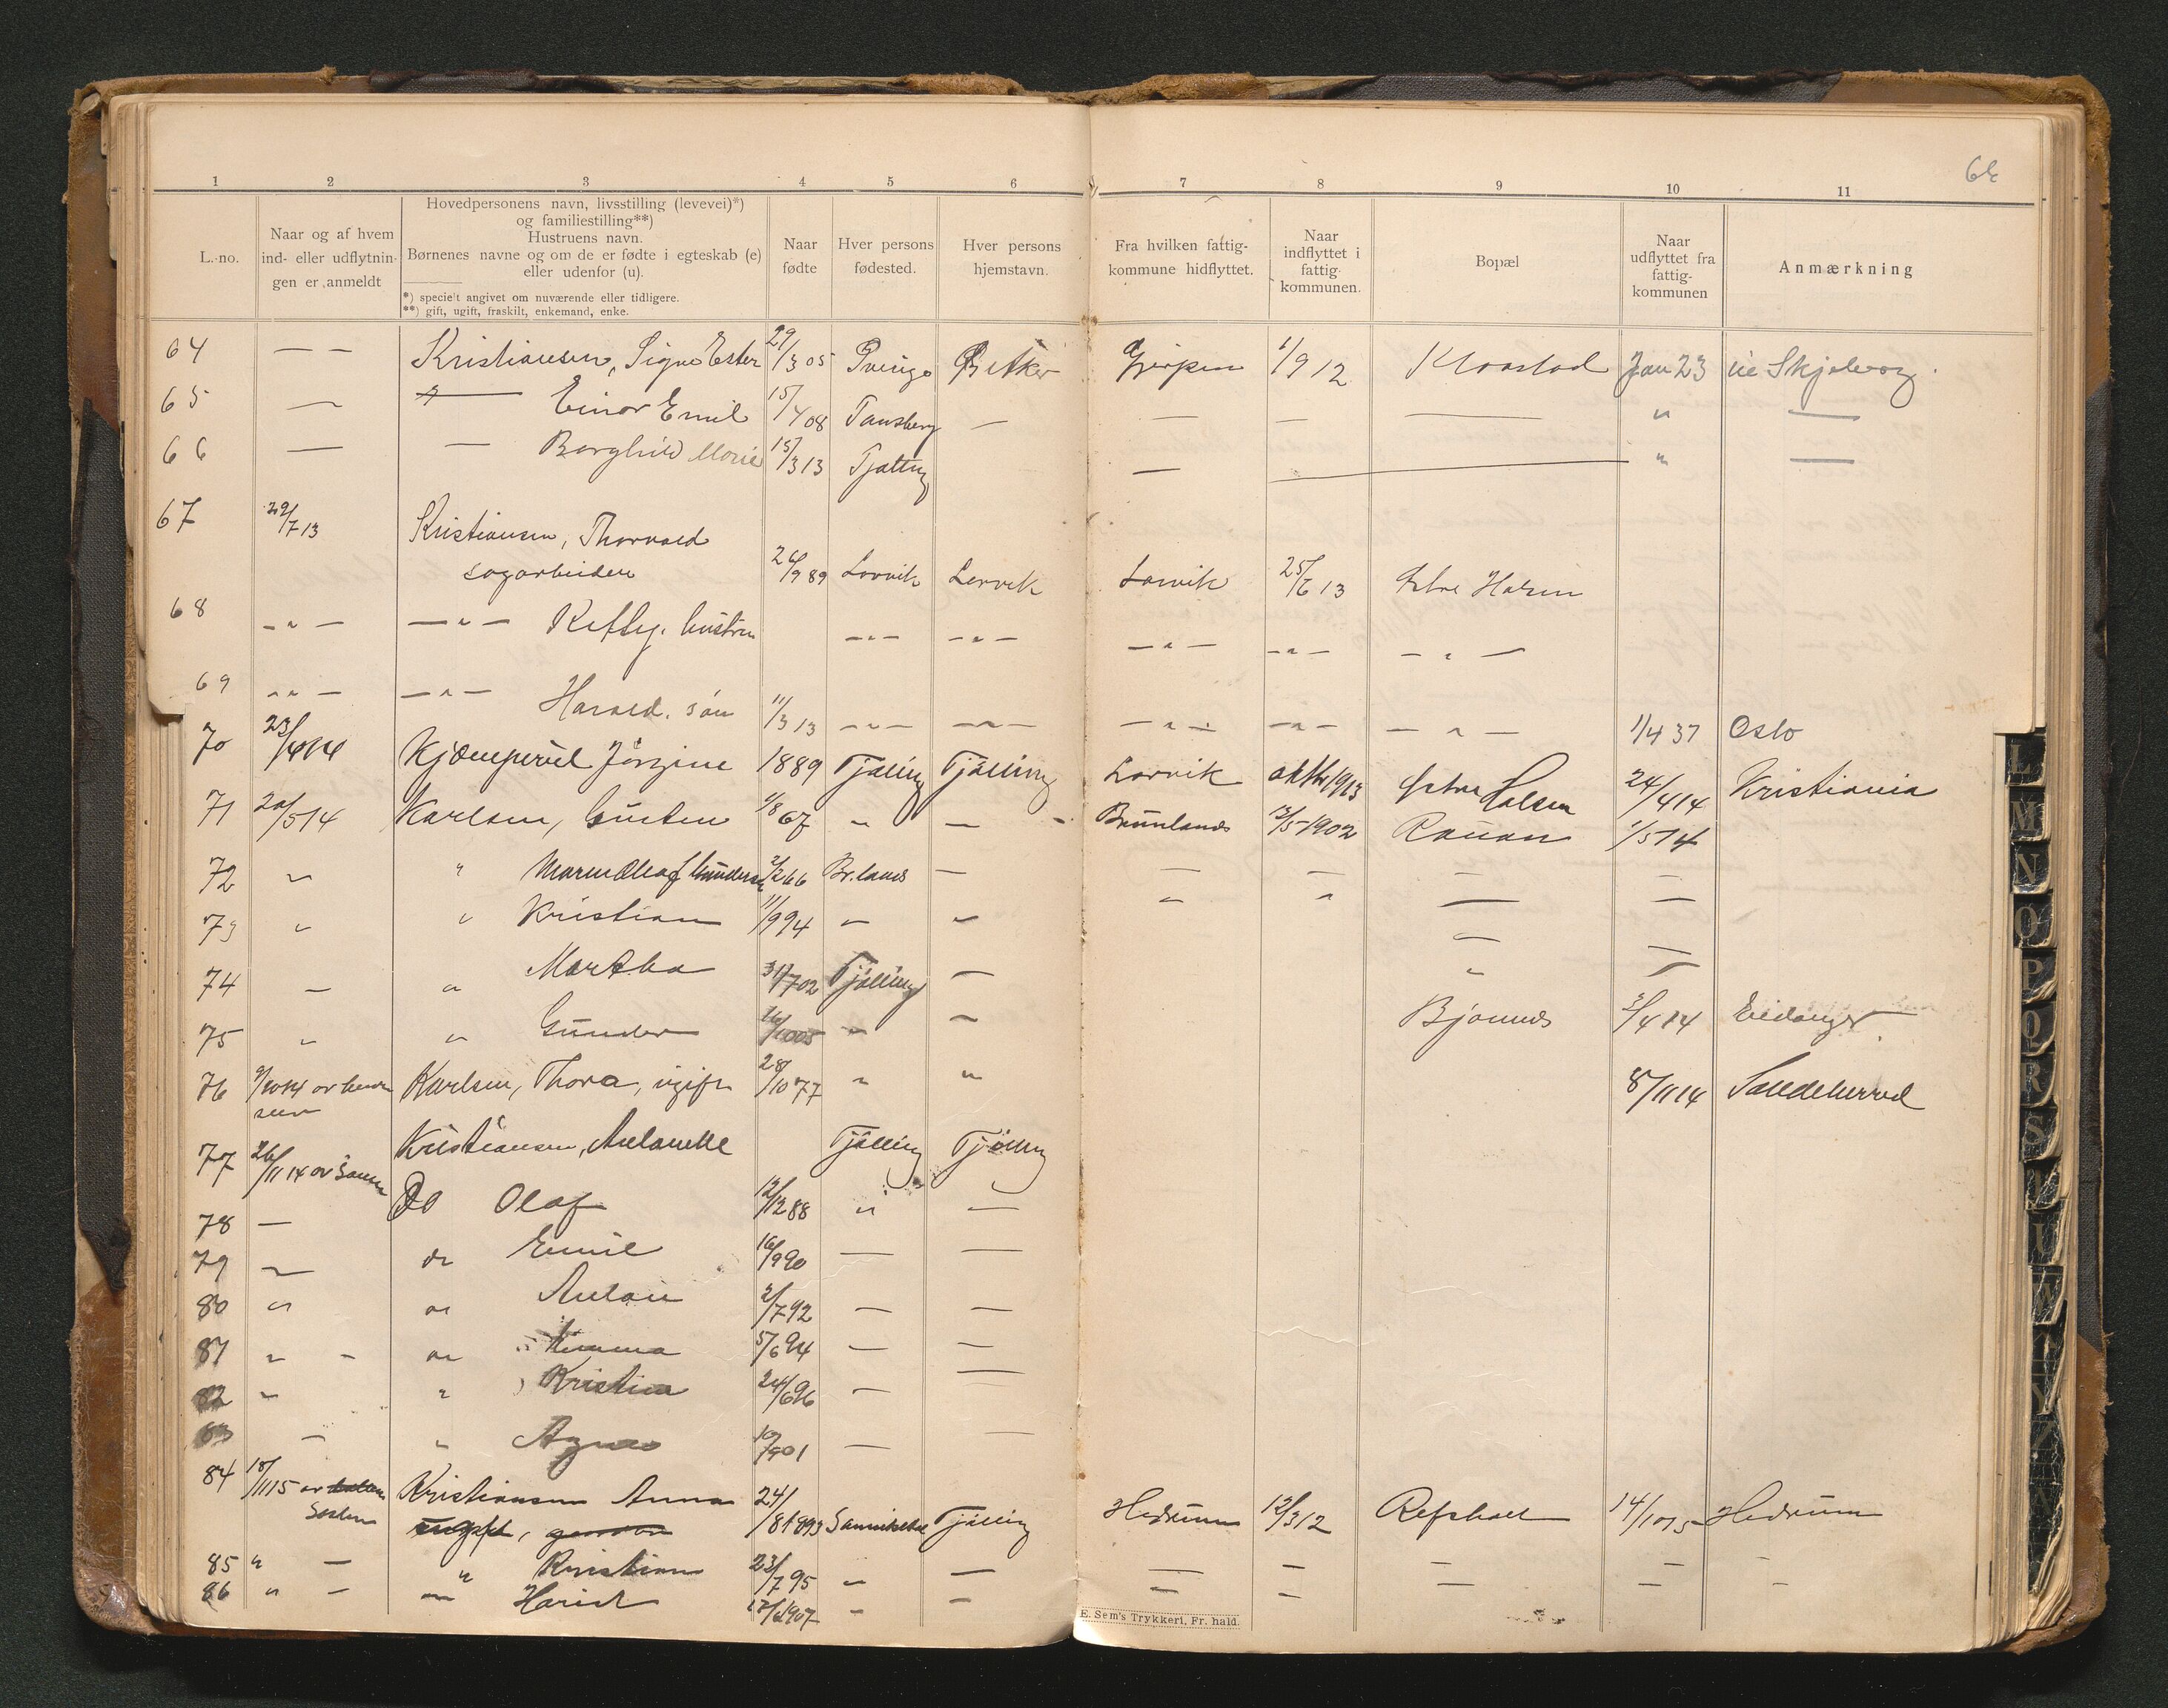 1 2 3 4 5 6 7 8 9 10 11
L.-no.
Naar og af hvem
ind- eller udflytnin-
gen er anmeldt
Hovedpersonens navn, livsstilling (levevei)*)
og familiestilling**)
Hustruens navn.
Børnenes navne og om de er fødte i egteskab (e)
eller udenfor (u).
*) specielt angivet om nuværende eller tidligere.
**) gift, ugift, fraskilt, enkemand, enke.
Naar
fødte
Hver persons
fødested.
Hver persons
hjemstavn.
Fra hvilken fattig-
kommune hidflyttet.
Naar
indflyttet i
fattig-
kommunen.
Bopæl
Naar
udflyttet fra
fattig-
kommunen
Anmærkning
64 — — Kristiansen, Signe Ester 29/3 05 Aker Gjerpen 1/9 12 Klaastad Jan 23 Skjeberg
65 — — Einar Emil 15/4 08 Tønsberg — — — — " —
66 — — Borghild Marie 15/3 13 Tjølling — — " —
67 29/7 13 Kristiansen, Thorvald
sagarbeider 26/9 89 Larvik Larvik Larvik 25/6 13 Østre Halsen
68 — " — — " — hustru — " — — " — — " — — " — — " —
69 — " — — " — Harald. søn 11/3 13 — " — — " — — " — — " — — " — 1/4 37 Oslo
70 23/4 14 Jørgine 1889 Tjølling Tjølling Larvik oktbr 1913 Østre Halsen 24/4 14 Kristiania
71 20/5 14 Karlsen, Gusten 1/8 67 " — Brunlanes 12/5 1902 Rauan 1/5 14
72 " " Maren Oleaf Gundersen 2/2 66 Br.lanes — — — — —
73 " " Kristian 11/9 94 " " " " — —
74 — " Martha 31/7 02 Tjølling — — —
75 " " Gunder " " Bjønnes 3/4 14 Eidanger
76 Karlsen, Thora, ugift 28/10 77 " " 8/11 14 Sandeherred
77 26/11 14 av Kristiansen, Antonette Tjølling Tjølling
78 — Do Olaf 12/12 88 " —
79 " do Emil 16/9 90 — —
80 " do Anton 2/7 92 — —
81 " — do 5/6 94 — —
82 " " Kristian 24/6 96 — —
83 — " Agnes 10/9 01 — —
84 18/11 15 av
Søsteren
Kristiansen Anna
ugift,
24/8 1893 Tjølling Hedrum 12/3 12 Refsholt 14/10 15 Hedrum
85 " — " Kristian 23/7 95 " — — — — — -
86 " — " 1907 " — — — — — -
E. Sem's Trykkeri, Fr. hald.
L
M
N
O
P
Q
R
S
T
U